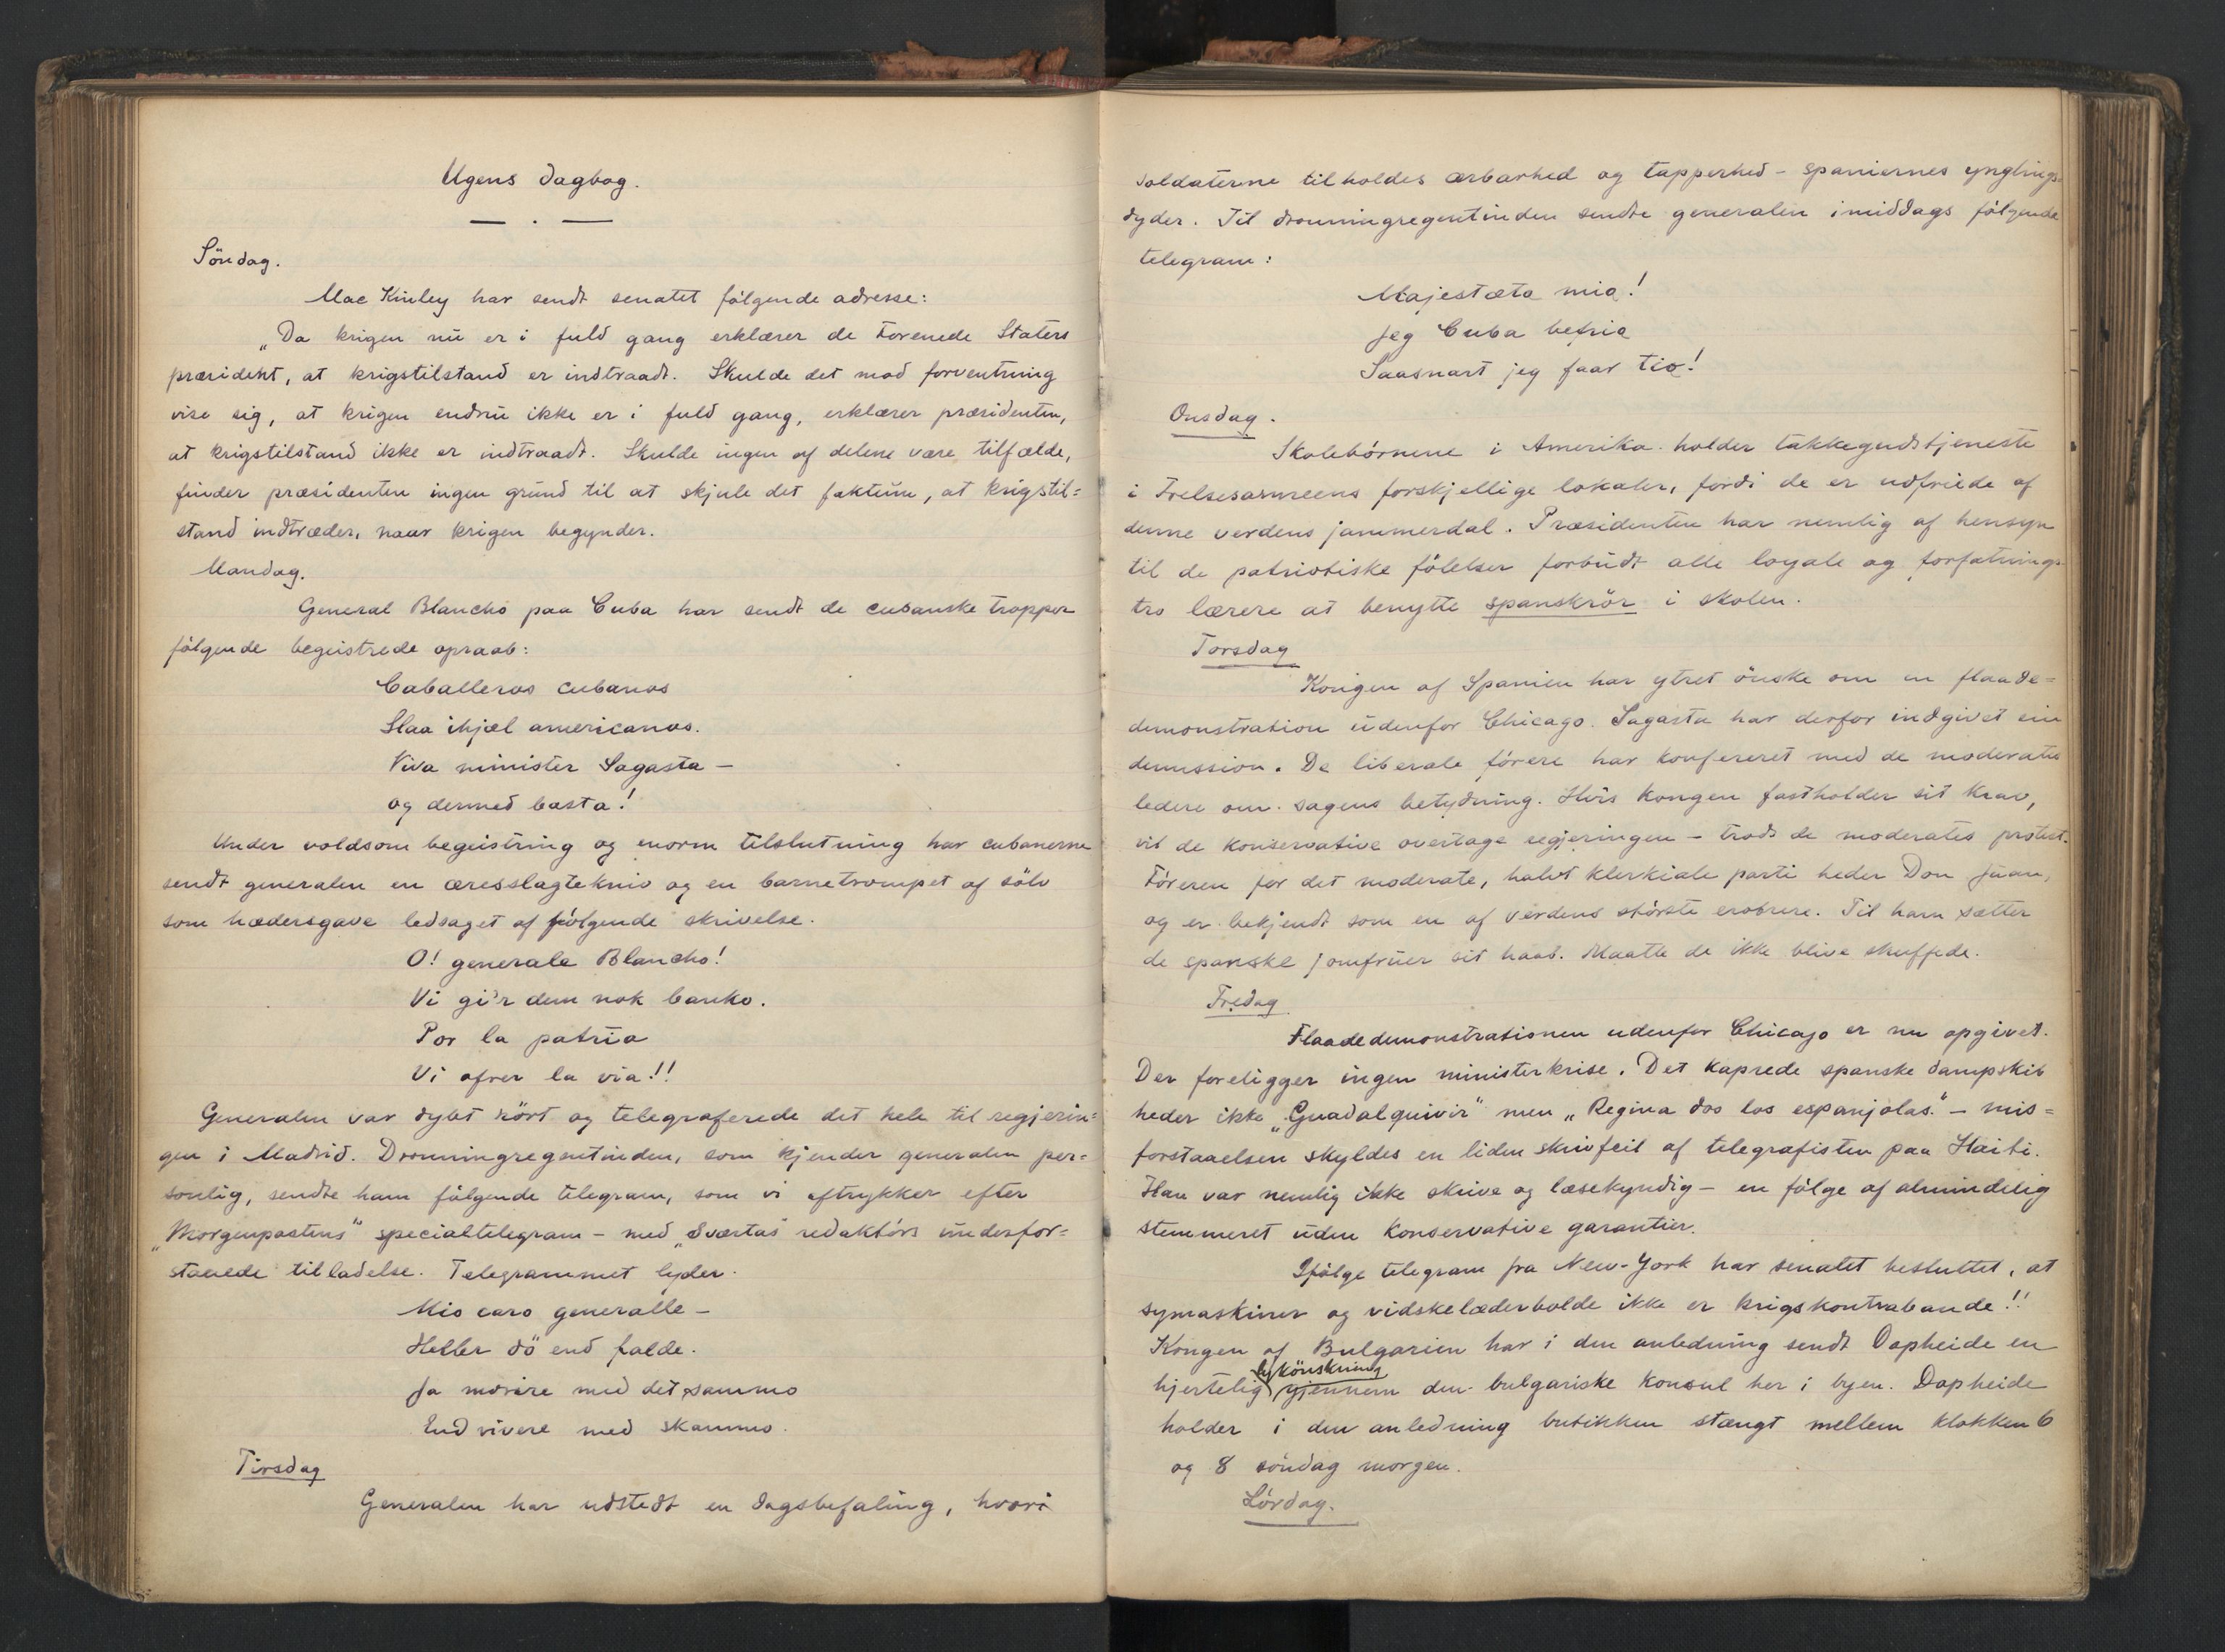 Ugens dagbog.
Söndag.
Mac Kinley har sendt senatet fölgende adresse:
„Da krigen nu er i fuld gang erklærer de Forenede Staters
præsident, at krigstilstand er indtraadt. Skulde det mod forventning
vise sig, at krigen endnu ikke er i fuld gang, erklærer præsidenten,
at krigstilstand ikke er indtraadt. Skulde ingen af delene være tilfælde,
finder præsidenten ingen grund til at skjule det faktum, at krigstil=
stand indtræder, naar krigen begynder.
Mandag.
General Blancho paa Cuba har sendt de cubanske tropper
fölgende begeistrede opraab:
Caballeros cubanos
Slaa ihjæl americanos.
Viva minister Sagasta –
og dermed basta!
Under voldsom begeistring og enorm tilslutning har cubanerne
sendt generalen en æresslagtekniv og en barnetrompet af sölv
som hædersgave ledsaget af fölgende skrivelse.
O! generale Blancho!
Vi gi'r dem nok banko.
Por la patria
Vi ofrer la via!!
Generalen var dybt rört og telegraferede det hele til regjerin=
gen i Madrid. Dronningregentinden, som kjender generalen per=
sonlig, sendte ham fölgende telegram, som vi aftrykker efter
„Morgenpostens" specialtelegram – med „Sværtas" redaktörs underfor=
staaede tilladelse. Telegrammet lyder.
Mio caro generalle –
Heller dö end falde.
Ja morire med det samme
End vivere med skammo.
Tirsdag
Generalen har udstedt en dagsbefaling, hvori
soldaterne tilholdes ærbarhed og tapperhed – spaniernes ynglings=
dyder. Til dronningregentinden sendte generalen imiddags fölgende
telegram:
Majestæta mia!
Jeg Cuba befria
Saasnart jeg faar tia!
Onsdag.
Skolebörnene i Amerika holder takkegudstjeneste
i Frelsesarmeens forskjellige lokaler, fordi de er udfriede af
denne verdens jammerdal. Præsidenten har nemlig af hensyn
til de patriotiske fölelser forbudt alle loyale og forfatnings=
tro lærere at benytte spanskrör i skolen.
Torsdag
Kongen af Spanien har ytret önske om en flaade=
demonstration udenfor Chicago. Sagasta har derfor indgivet sin
demission. De liberale förere har konfereret med de moderate
ledere om sagens betydning. Hvis kongen fastholder sit krav,
vil de konservative overtage regjeringen – trods de moderates protest.
Föreren for det moderate, halvt klerkiale parti heder Don Juan,
og er bekjendt som en af verdens störste erobrere. Til ham sætter
de spanske jomfruer sit haab. Maatte de ikke blive skuffede.
Fredag
Flaadedemonstrationen udenfor Chicago er nu opgivet.
Der foreligger ingen ministerkrise. Det kaprede spanske dampskib
heder ikke „Guadalquivir" men „Regina dos los espanjolas." – mis=
forstaaelsen skyldes en liden skrivfeil af telegrafisten paa Haiti.
Han var nemlig ikke skrive og læsekyndig – en fölge af almindelig
stemmeret uden konservative garantier.
Ifölge telegram fra New-York har senatet besluttet, at
symaskiner og vidskelæderbolde ikke er krigskontrabande!!
Kongen af Bulgarien har i den anledning sendt Dapheide en
hjertelig lykönskning gjennem den bulgariske konsul her i byen. Dapheide
holder i den anledning butikken stængt mellem klokken 6
og 8 söndag morgen.
Lördag.